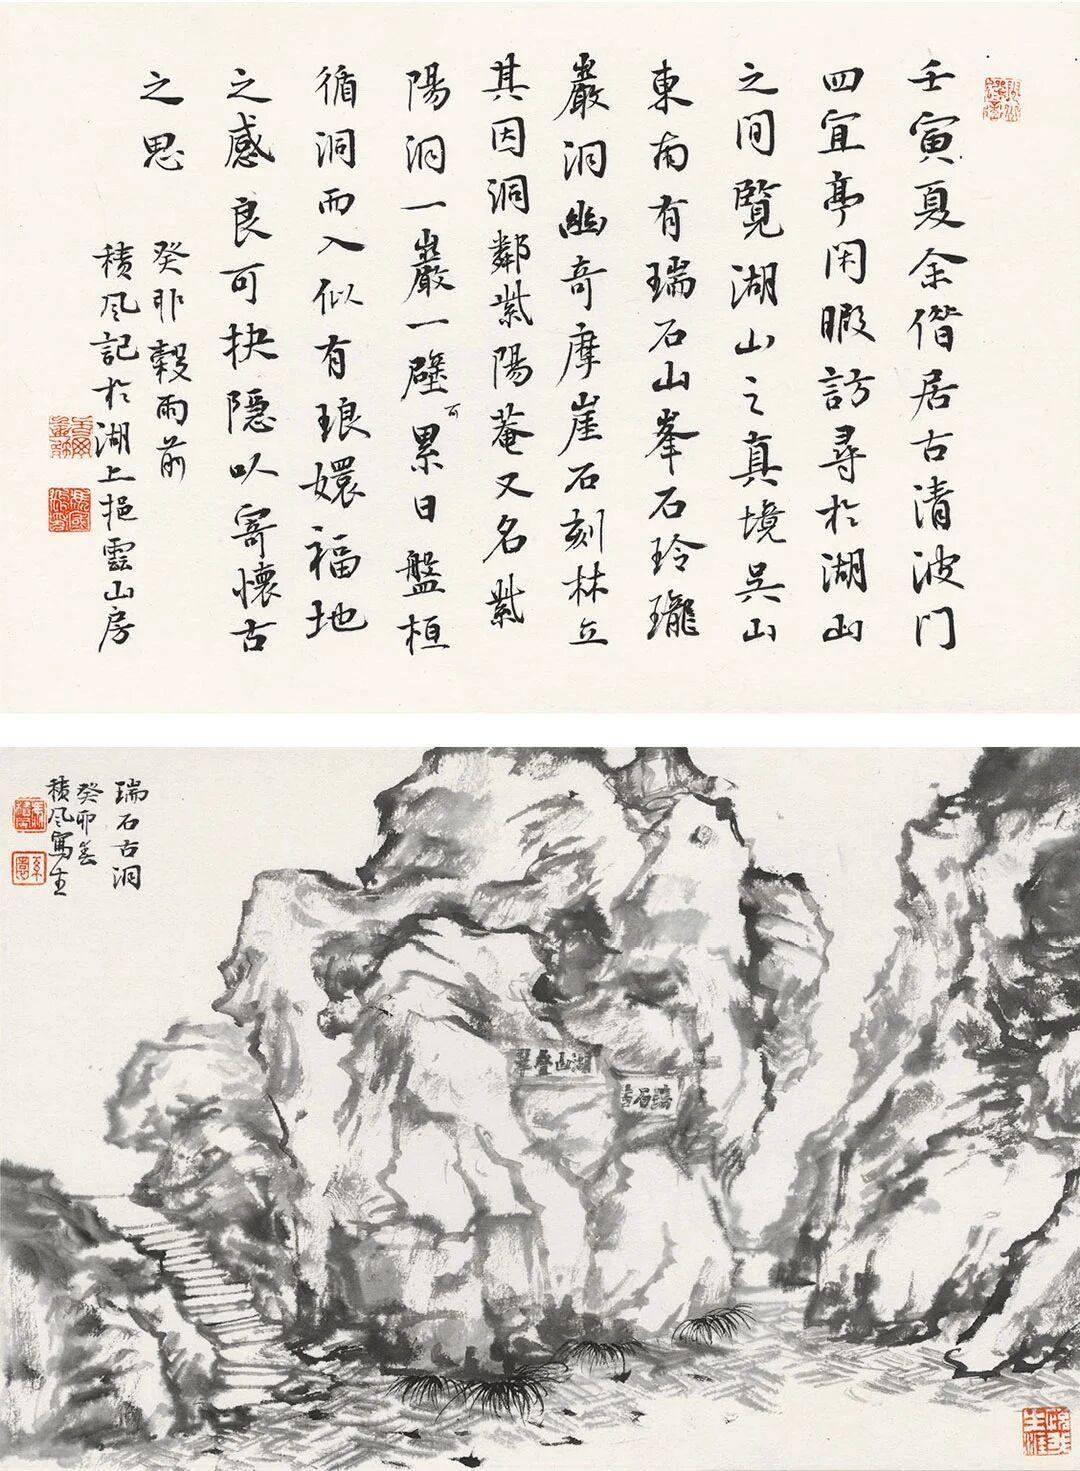 壬寅夏余偕居古清波门
四宜亭闲暇訪尋於湖山
之间覽湖山之真境吴山
東南有瑞石山峯石玲瓏
巖洞幽奇摩崖石刻林立
其因洞鄰紫陽菴又名紫
陽洞一巖一壁可累日盤桓
循洞而入似有琅嬛福地
之感良可抉隱以寄懷古
之思
癸卯穀雨前
積风記於湖上挹雲山房
瑞石古洞
癸卯春
積风寫生
湖山疊翠
瑞石古